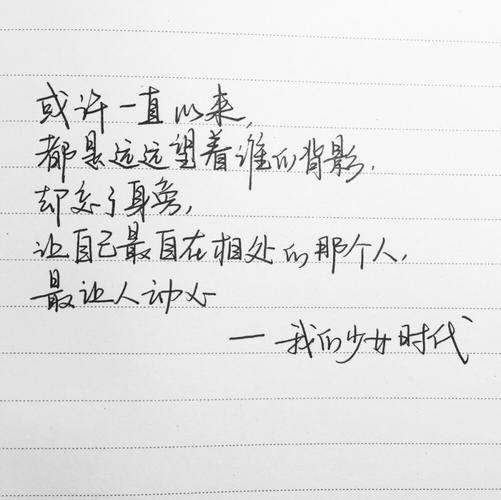 或许一直以来,
都是远远望着谁的背影.
却忘了身旁,
让自己最自在相处的那个人.
最让人动心
— 我的少女时代